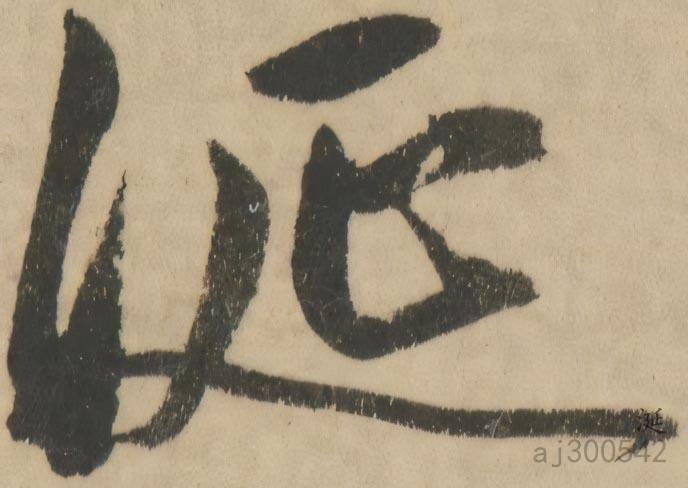 涎
涎
aj300542